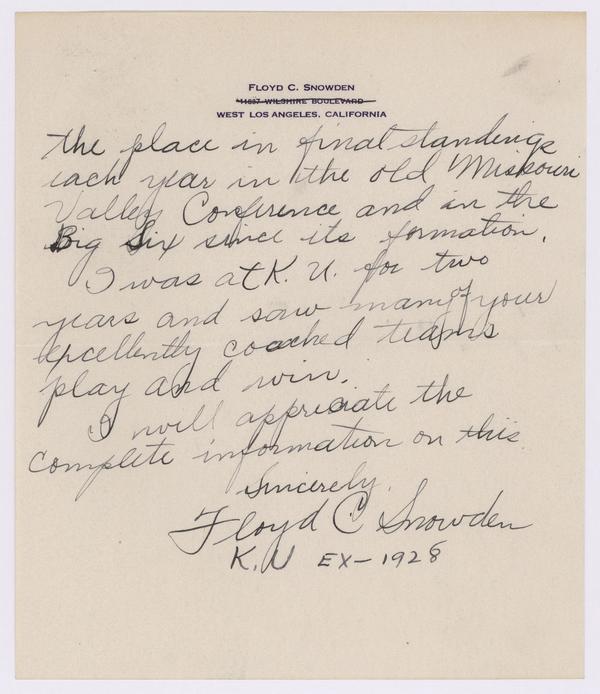 FLOYD C. SNOWDEN
11037 WILSHIRE BOULEVARD
WEST LOS ANGELES, CALIFORNIA
the place in final standings
each year in the old Missouri
Valley Conference and in the
Big Six since its formation.
I was at K. U. for two
years and saw many of your
excellently coached teams
play and win.
I will appreciate the
complete information on this.
Sincerely,
Floyd C. Snowden
K. U EX-1928